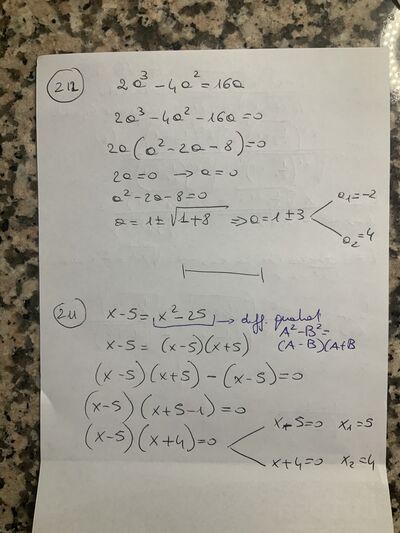 212
2a³ - 4a² = 16a
2a³ - 4a² - 16a = 0
2a(a² - 2a - 8) = 0
2a = 0 → a = 0
a² - 2a - 8 = 0
a = 1 ± √1+8 ⇒ a = 1 ± 3
a₁ = -2
a₂ = 4
211
x - 5 = x² - 25 → diff. quadrat
A² - B² =
(A - B)(A+B
x - 5 = (x - 5)(x + 5)
(x - 5)(x + 5) - (x - 5) = 0
(x - 5)(x + 5 - 1) = 0
(x - 5)(x + 4) = 0
x - 5 = 0 x₁ = 5
x + 4 = 0 x₂ = 4